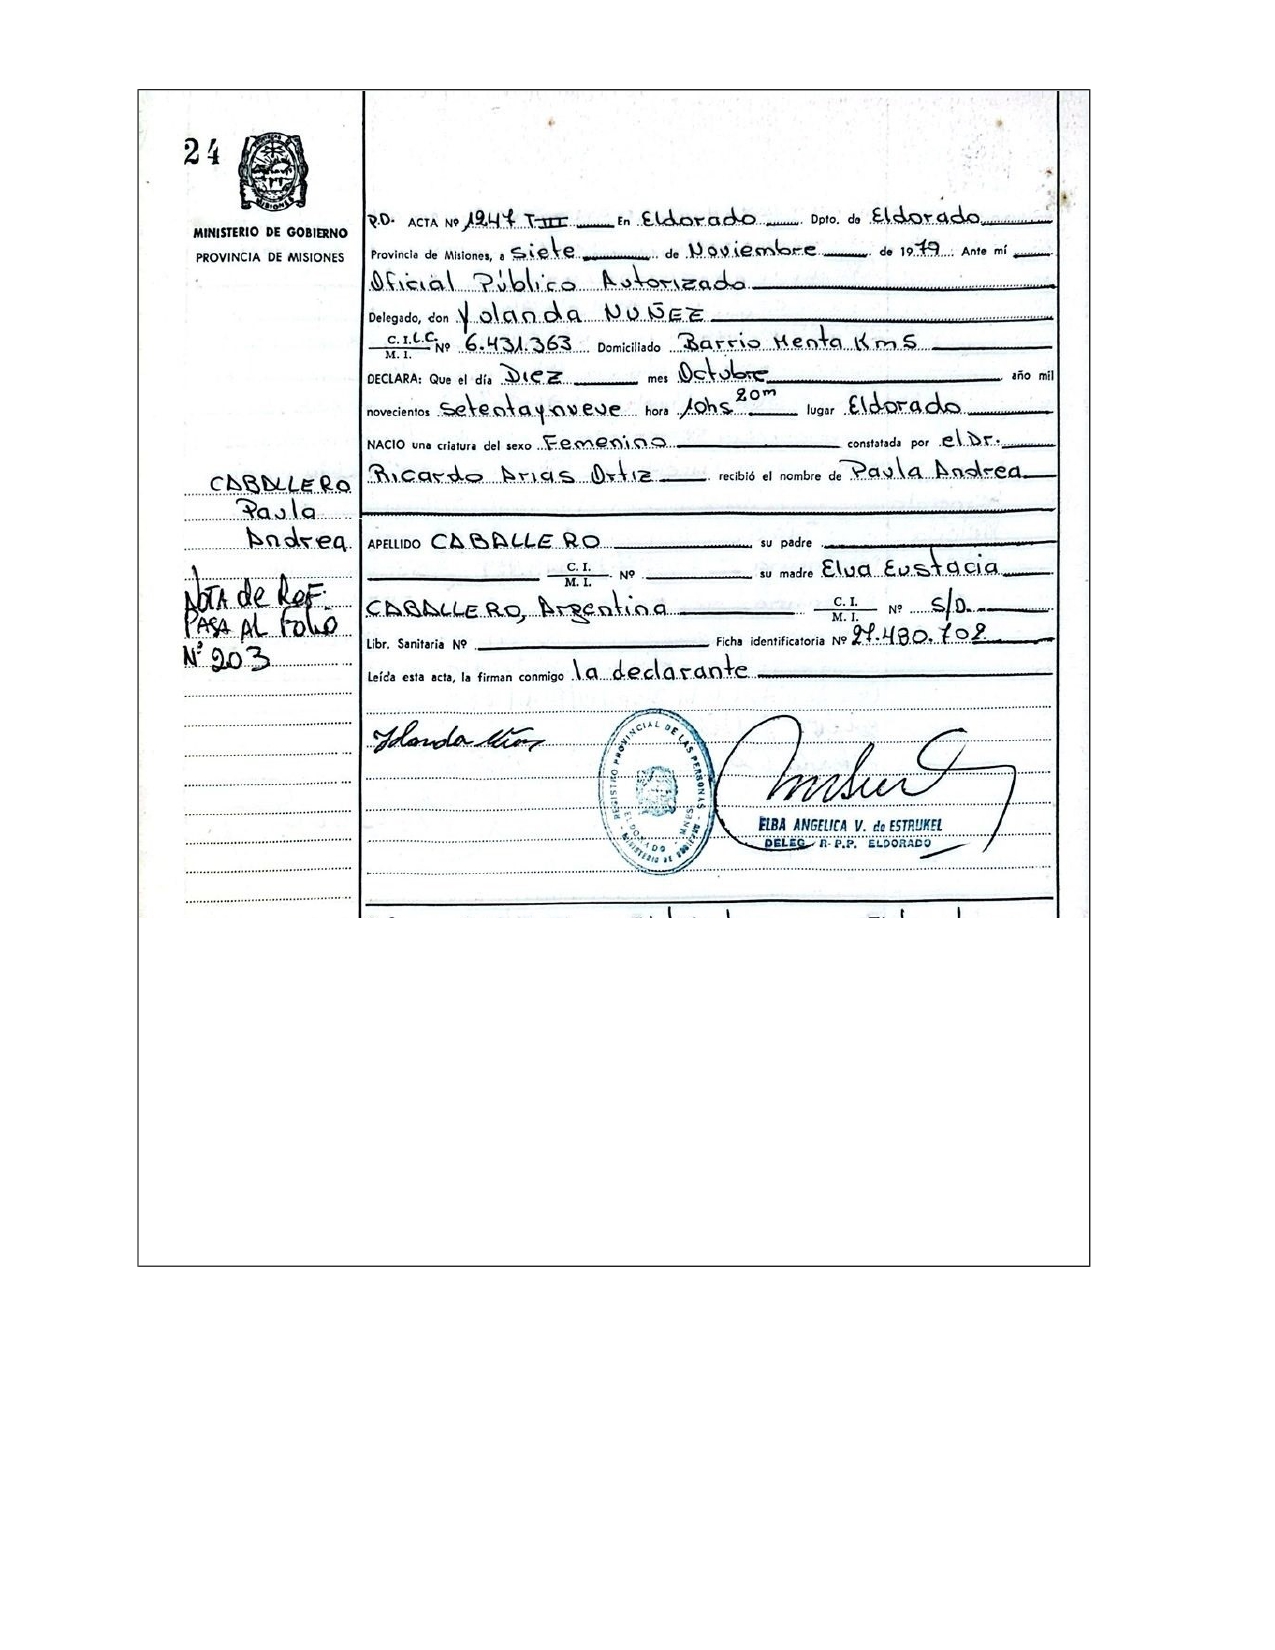 24
MINISTERIO DE GOBIERNO
PROVINCIA DE MISIONES
P.D. ACTA Nº 1247 T III En Eldorado Dpto. de Eldorado
Provincia de Misiones, a siete de Noviembre de 1979 Ante mí
Oficial Público Autorizado
Delegado, don Yolanda NUÑEZ
C. I. L.C. M. I. Nº 6.431.363 Domiciliado Barrio Henta Km5
DECLARA: Que el día Diez mes Octubre año mil
novecientos setentaynueve hora 10hs 20m lugar Eldorado
NACIO una criatura del sexo Femenino constatada por el Dr.
Ricardo Arias Ortiz recibió el nombre de Paula Andrea
APELLIDO CABALLERO su padre
C. I. M. I. Nº su madre Elva Eustacia
CABALLERO, Argentina C. I. M. I. Nº S/D.
Libr. Sanitaria Nº Ficha identificatoria Nº 27.480.702
Leída esta acta, la firman conmigo la declarante
CABALLERO
Paula
Andrea
NOTA de Ref:
PASA AL Folio
Nº 203
Yolanda
REGISTRO PROVINCIAL DE LAS PERSONAS
ELDORADO MNES.
MINISTERIO DE GOBIERNO
ELBA ANGELICA V. de ESTRUKEL
DELEG. R. P.P. ELDORADO